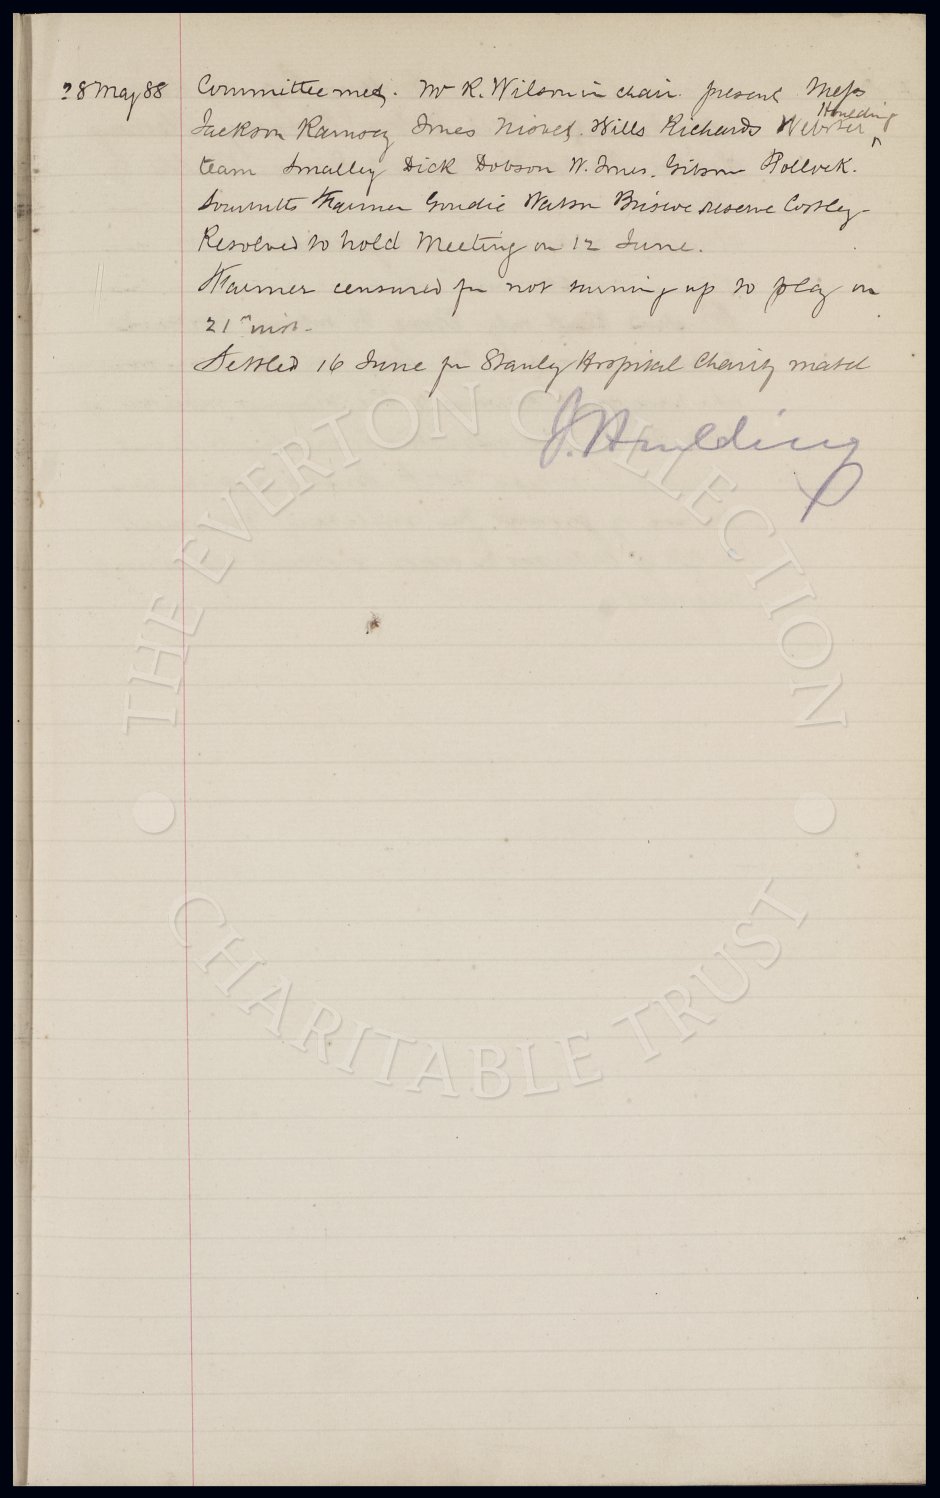 28 May 88 Committee met. Mr R. Wilson in chair. present Messrs
Houlding
Jackson Ramsay Jones Nisbet. Wills Richards Webster ^
team Smalley Dick Dobson W. Jones. Gibson Pollock.
Farmer Goudie Watson Briscoe reserve Costley
Resolved to hold Meeting on 12 June.
Farmer censured for not turning up to play on
21st inst.
Settled 16 June for Stanley Hospital Charity match
J. Houlding
THE EVERTON COLLECTION
CHARITABLE TRUST